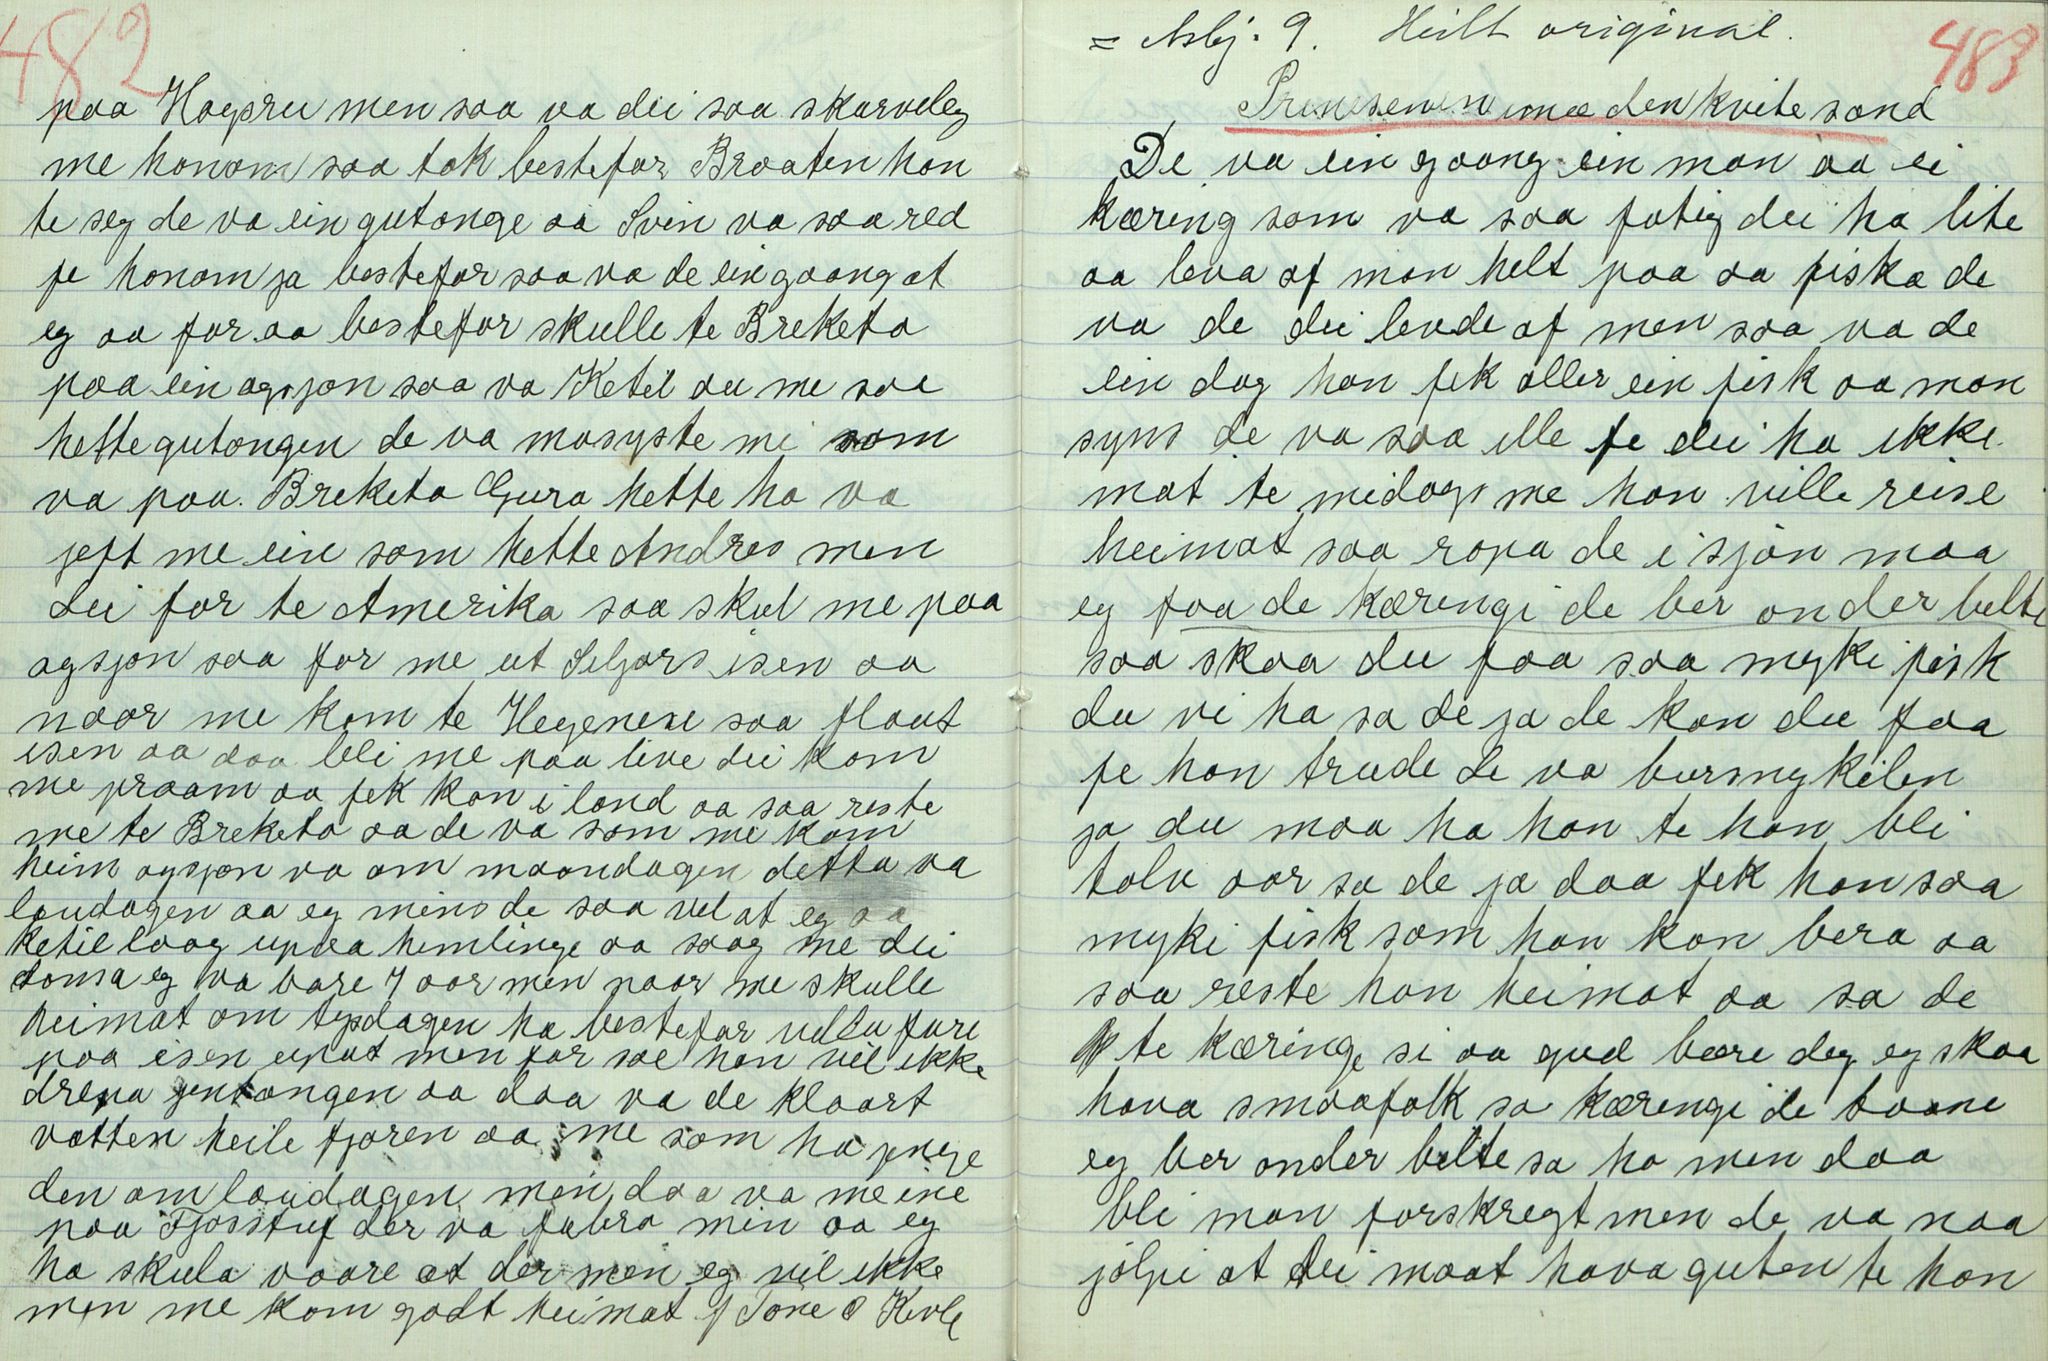 482
paa Høgsru men saa va dei saa skarveleg
me honom saa tok bestefar Braaten hon
te seg de va ein gutonge aa Svin va saa red
fe honom ja bestefar saa va de ein gaang at
eg aa far aa bestefar skulle te Breketo
paa ein agsjon saa va Ketil au me soe
hette gutongen de va mosyste mi som
va paa Breketo Gura hette ho va
jeft me ein som hette Andres men
dei for te Amerika saa skul me paa
agsjon saa for me ut Seljors isen aa
naar me kom te Hegenese saa flaut
isen aa daa blei me paa live dei kom
me praam aa fek kon i land aa saa reste
me te Breketo aa de va som me kom
heim agsjon va om maandagen detta va
laudagen aa eg mins de saa vel at eg aa
Ketil laag uppaa hemlinge aa saag me dei
donsa eg va bare 7 aar men naar me skulle
heimat om tysdagen ha bestefar villa fare
paa isen upat men far sae hon vil ikke
drepa jentongen aa daa va de klaart
vatten heile fjoren aa me som ha jenge
den om laudagen men daa va me ine
paa Fjosstuf der va fabro min aa eg
ha skula vaare at der men eg vil ikke
men me kom godt heimat f Tone O Kivle
= Asbj. 9. Heilt original.
483
Prinsessen mæ den kvite sand
De va ein gaang ein mon aa ei
kæring som va saa fatig dei ha lite
aa leva af mon helt paa aa fiska de
va de dei levde af men saa va de
ein dag hon fek aller ein fisk aa mon
syns de va saa ille fe dei ha ikke
mat te midags me hon ville reise
heimat saa ropa de i sjøn maa
eg faa de kærengi de ber onder belte
saa skaa du faa saa myki fisk
du vi ha sa de ja de kan du faa
fe hon trude de va bursnykelen
ja du maa ha hon te hon bli
tolv aar sa de ja daa fek hon saa
myki fisk som hon kon bera aa
saa reste hon heimat aa sa de
te kæringe si aa gud bære deg eg skaa
hava smaafolk sa kærengi de baane
eg ber onder belte sa ho men daa
bli mon forskregt men de va naa
jølpi at dei maat hava guten te hon